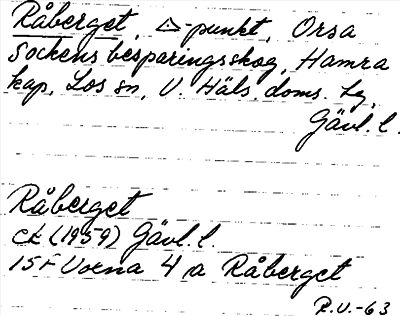 Råberget, △-punkt, Orsa
Sockens besparingsskog, Hamra
kap, Los sn, V. Häls. doms. lg,
Gävl. l.
Råberget
Ek (1959) Gävl. l.
15F Voxna 4 a Råberget
R.U.-63